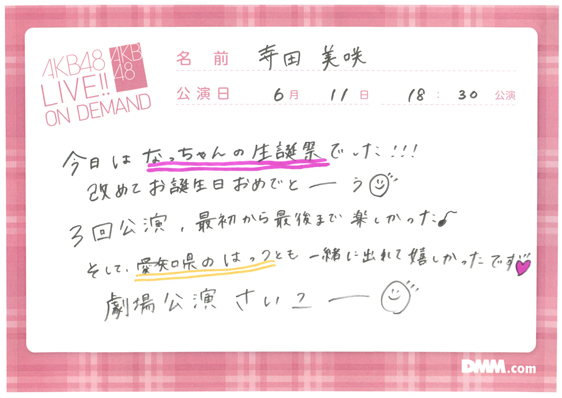 AKB48
LIVE!!
ON DEMAND
AKB
48
名前 寺田 美咲
公演日 6月 11日 18:30 公演
今日は なっちゃんの生誕祭でした!!!
改めてお誕生日おめでとーう
3回公演、最初から最後まで楽しかった♪
そして、愛知県のはっつとも 一緒に出れて嬉しかったです
劇場公演さいこー
DMM.com